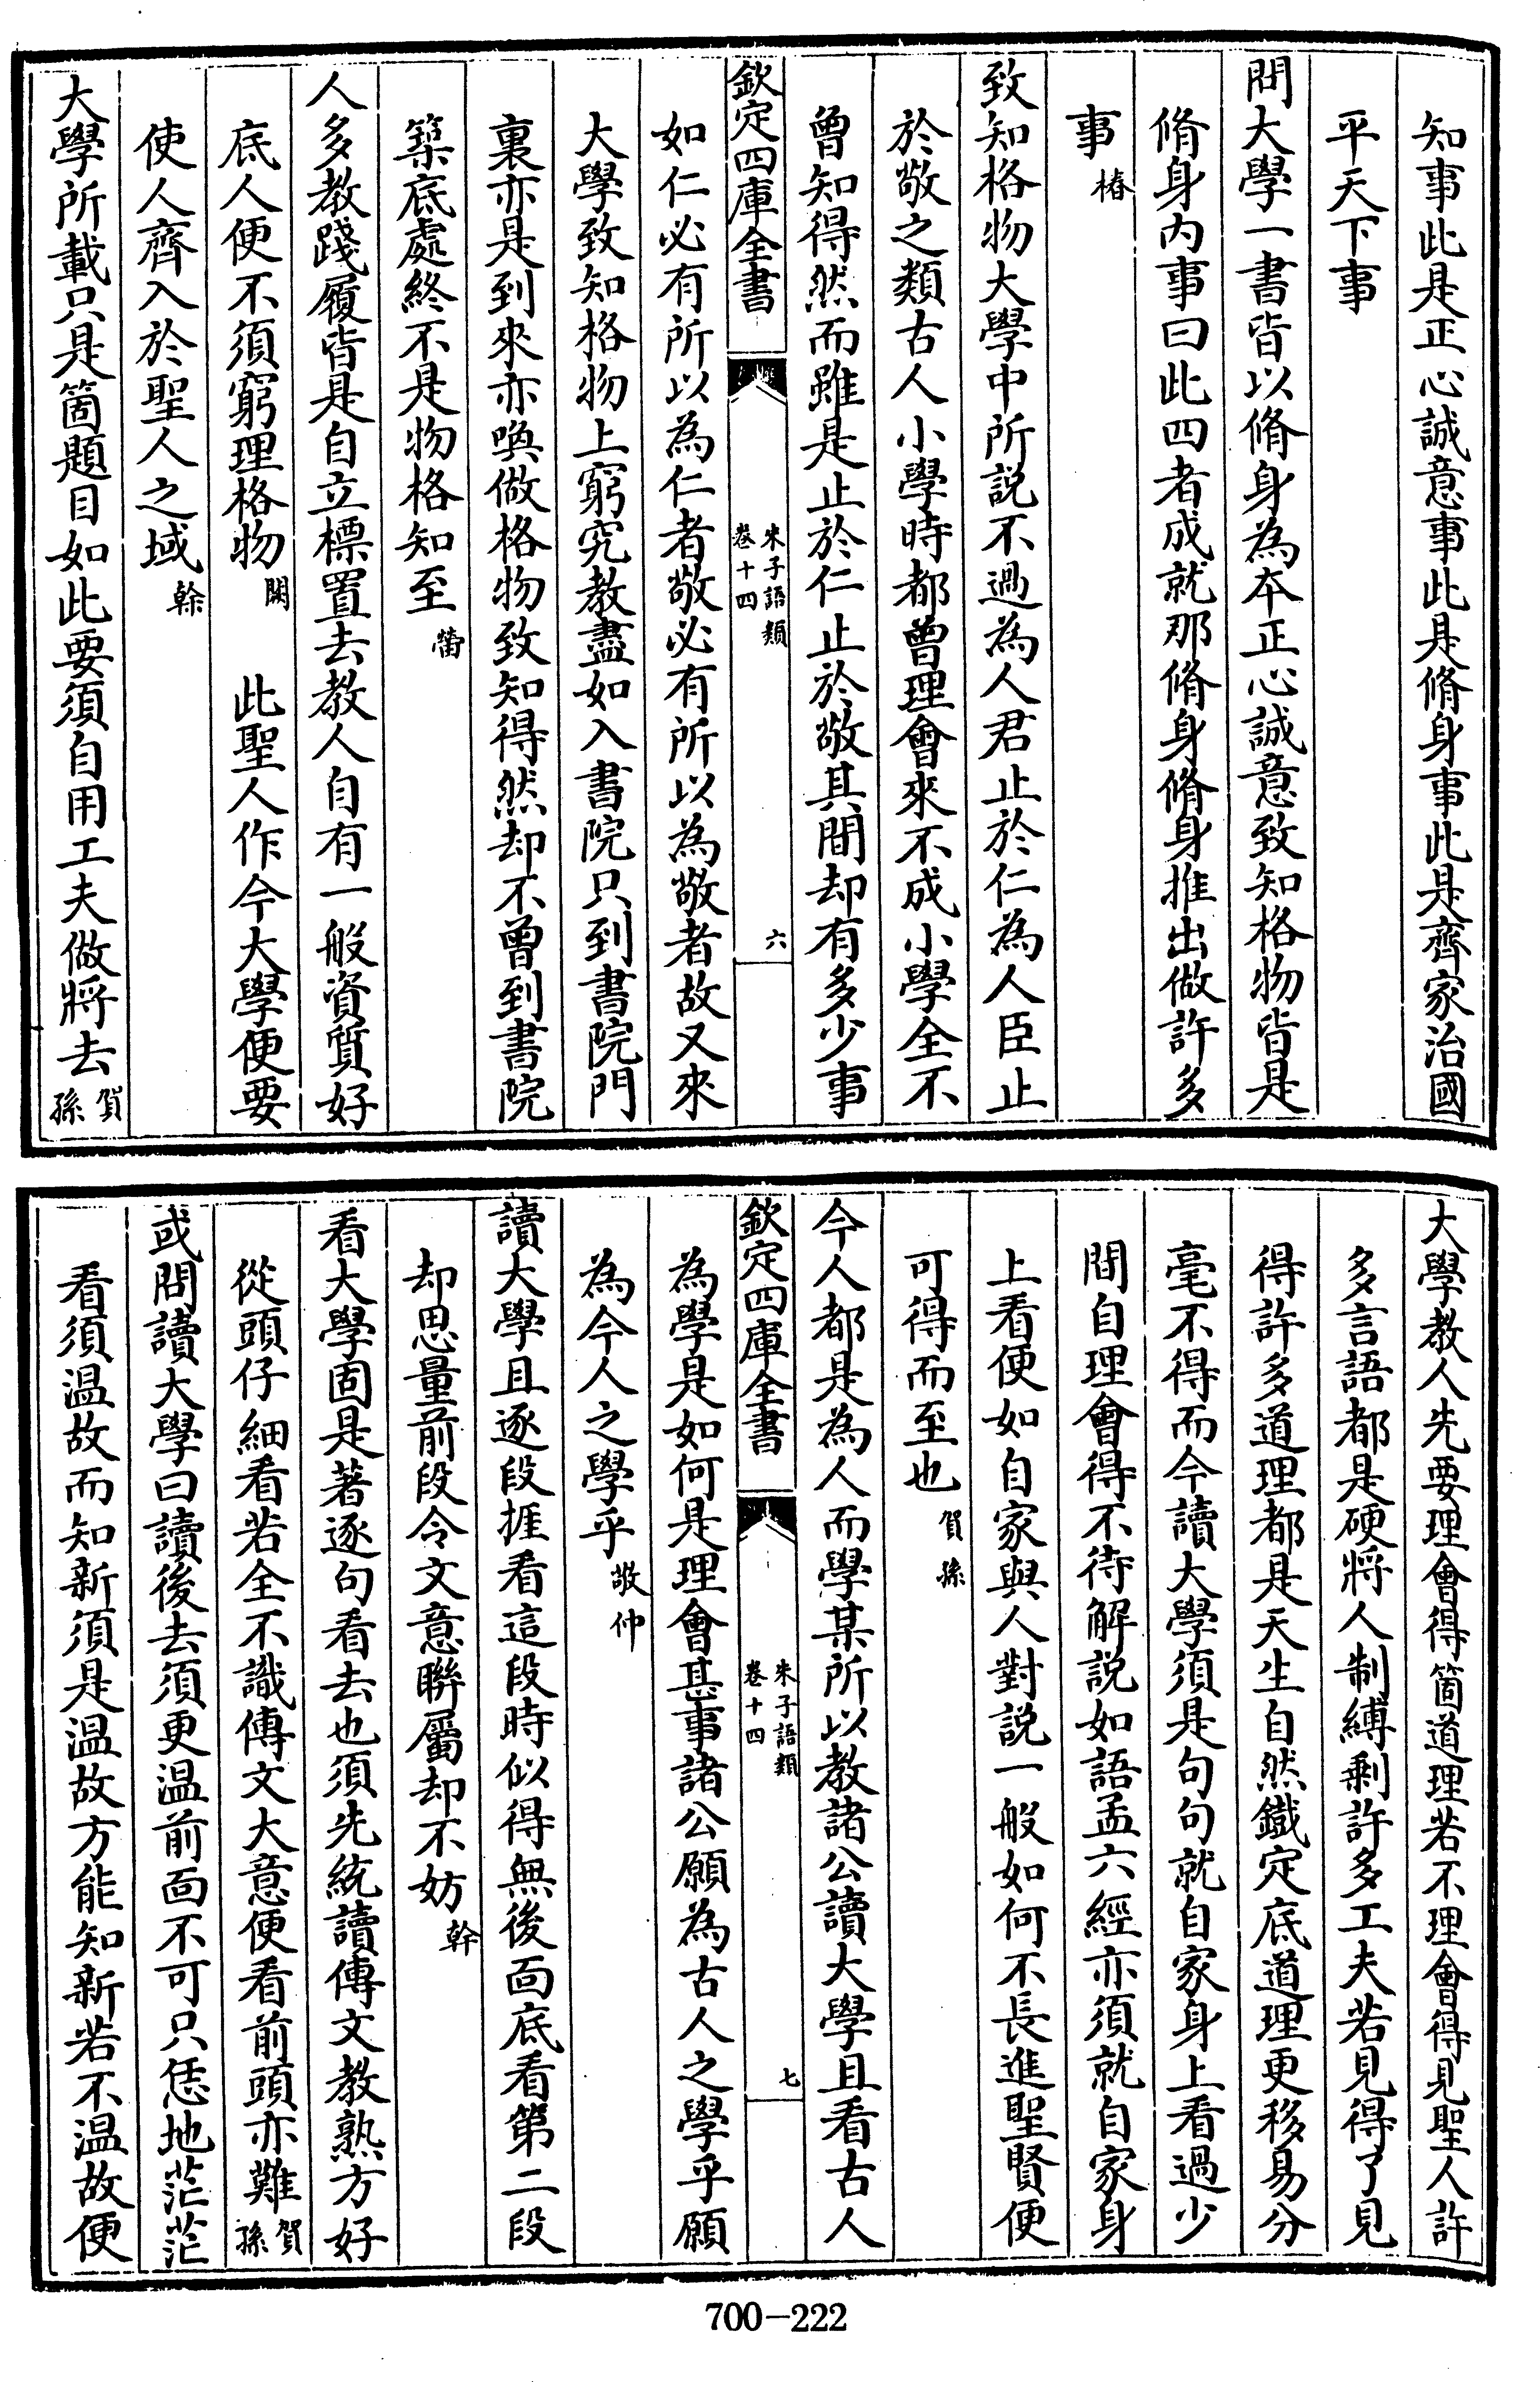 知事此是正心誠意事此是脩身事此是齊家治國
平天下事
問大學一書皆以脩身為本正心誠意致知格物皆是
脩身内事曰此四者成就那脩身脩身推出做許多
事椿
致知格物大學中所說不過為人君止於仁為人臣止
於敬之類古人小學時都曾理會來不成小學全不
曾知得然而雖是止於仁止於敬其間却有多少事
欽定四庫全書
朱子語類
卷十四
六
如仁必有所以為仁者敬必有所以為敬者故又來
大學致知格物上窮究教盡如入書院只到書院門
裏亦是到來亦喚做格物致知得然却不曾到書院
築底處終不是物格知至㽦
人多教踐履皆是自立標置去教人自有一般資質好
底人便不須窮理格物 此聖人作今大學便要
使人齊入於聖人之域榦
大學所載只是箇題目如此要須自用工夫做將去賀孫
大學教人先要理會得箇道理若不理會得見聖人許
多言語都是硬將人制縛剩許多工夫若見得了見
得許多道理都是天生自然鐵定底道理更移易分
毫不得而今讀大學須是句句就自家身上看過少
間自理會得不待解說如語孟六經亦須就自家身
上看便如自家與人對說一般如何不長進聖賢便
可得而至也賀孫
今人都是為人而學某所以教諸公讀大學且看古人
欽定四庫全書
朱子語類
卷十四
七
為學是如何是理會甚事諸公願為古人之學乎願
為今人之學乎敬仲
讀大學且逐段捱看這段時似得無後面底看第二段
却思量前段令文意聯屬却不妨榦
看大學固是著逐句看去也須先統讀傳文教熟方好
從頭仔細看若全不識傳文大意便看前頭亦難賀孫
或問讀大學曰讀後去須更温前面不可只恁地茫茫
看須温故而知新須是温故方能知新若不温故便
700-222